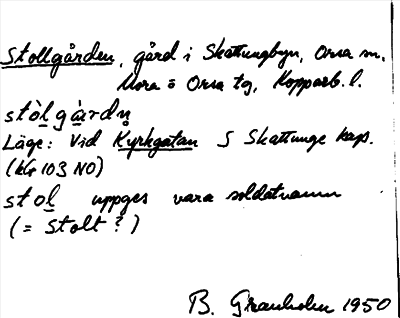 Stollgården, gård i Skattungbyn, Orsa sn,
Mora o Orsa tg, Kopparb. l.
stòl gà̱rdn̥
Läge: Vid Kyrkgatan S Skattunge kap.
(kr 103 NO)
stol uppges vara soldatnamn
(= Stolt ?)
B. Granholm 1950